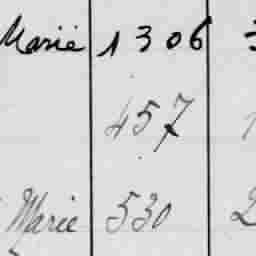 Marie 1306
457
Marie 530 2